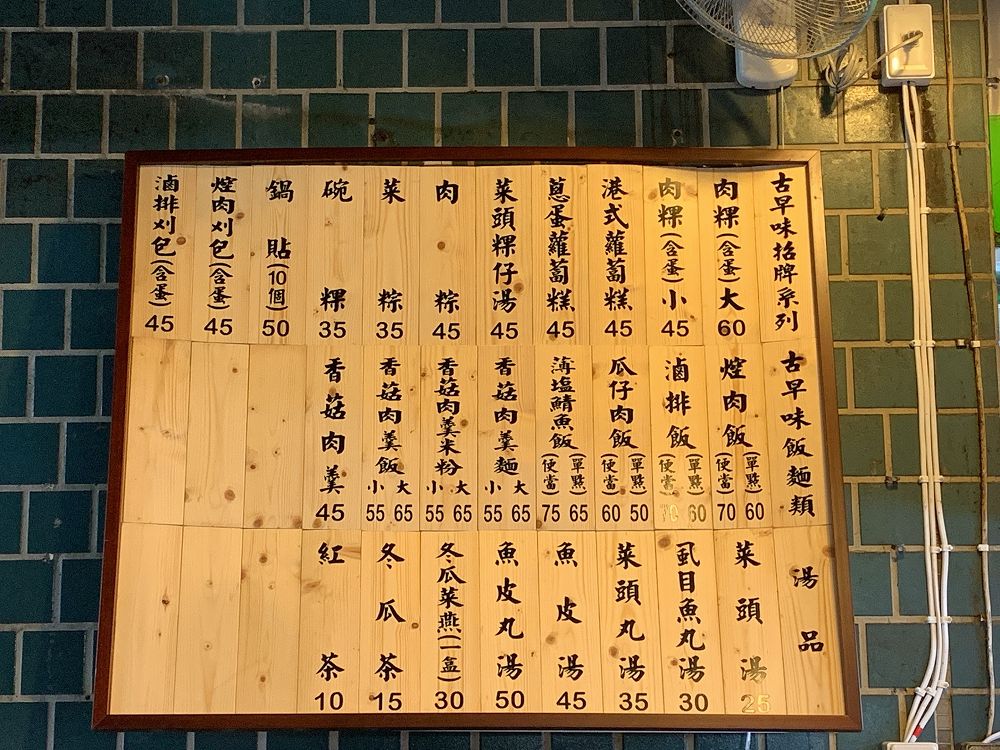 古早味招牌系列
肉粿(含蛋)大 60
肉粿(含蛋)小 45
港式蘿蔔糕 45
蔥蛋蘿蔔糕 45
菜頭粿仔湯 45
肉粽 45
菜粽 35
碗粿 35
鍋貼(10個) 50
焢肉刈包(含蛋) 45
滷排刈包(含蛋) 45
古早味飯麵類
焢肉飯 (單點) 60 (便當) 70
滷排飯 (單點) 60 (便當) 70
瓜仔肉飯 (單點) 50 (便當) 60
薄塩鯖魚飯 (單點) 65 (便當) 75
香菇肉羹麵 大 65 小 55
香菇肉羹米粉 大 65 小 55
香菇肉羹飯 大 65 小 55
香菇肉羹 45
湯品
菜頭湯 25
虱目魚丸湯 30
菜頭丸湯 35
魚皮湯 45
魚皮丸湯 50
冬瓜菜燕(一盒) 30
冬瓜茶 15
紅茶 10